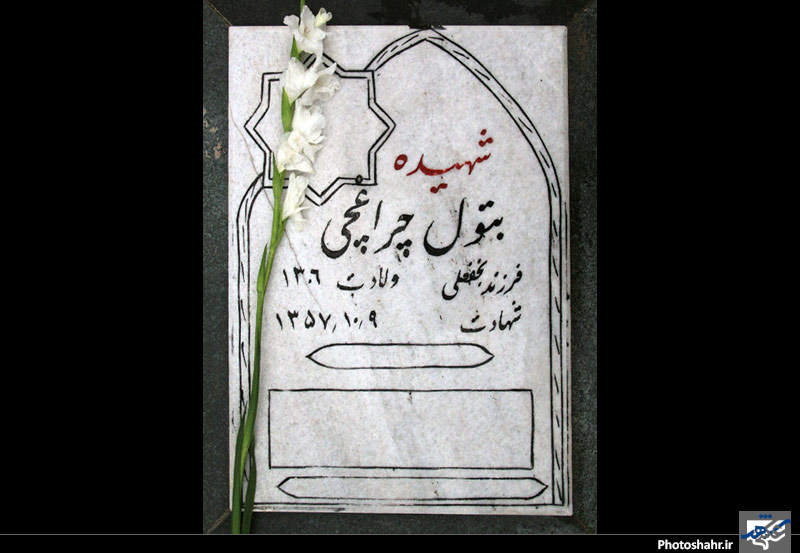 شهیده
بتول چراغچی
فرزند نجفعلی ولادت ۱۳۰۶
شهادت ۱۳۵۷٫۱۰٫۹
Photoshahr.ir